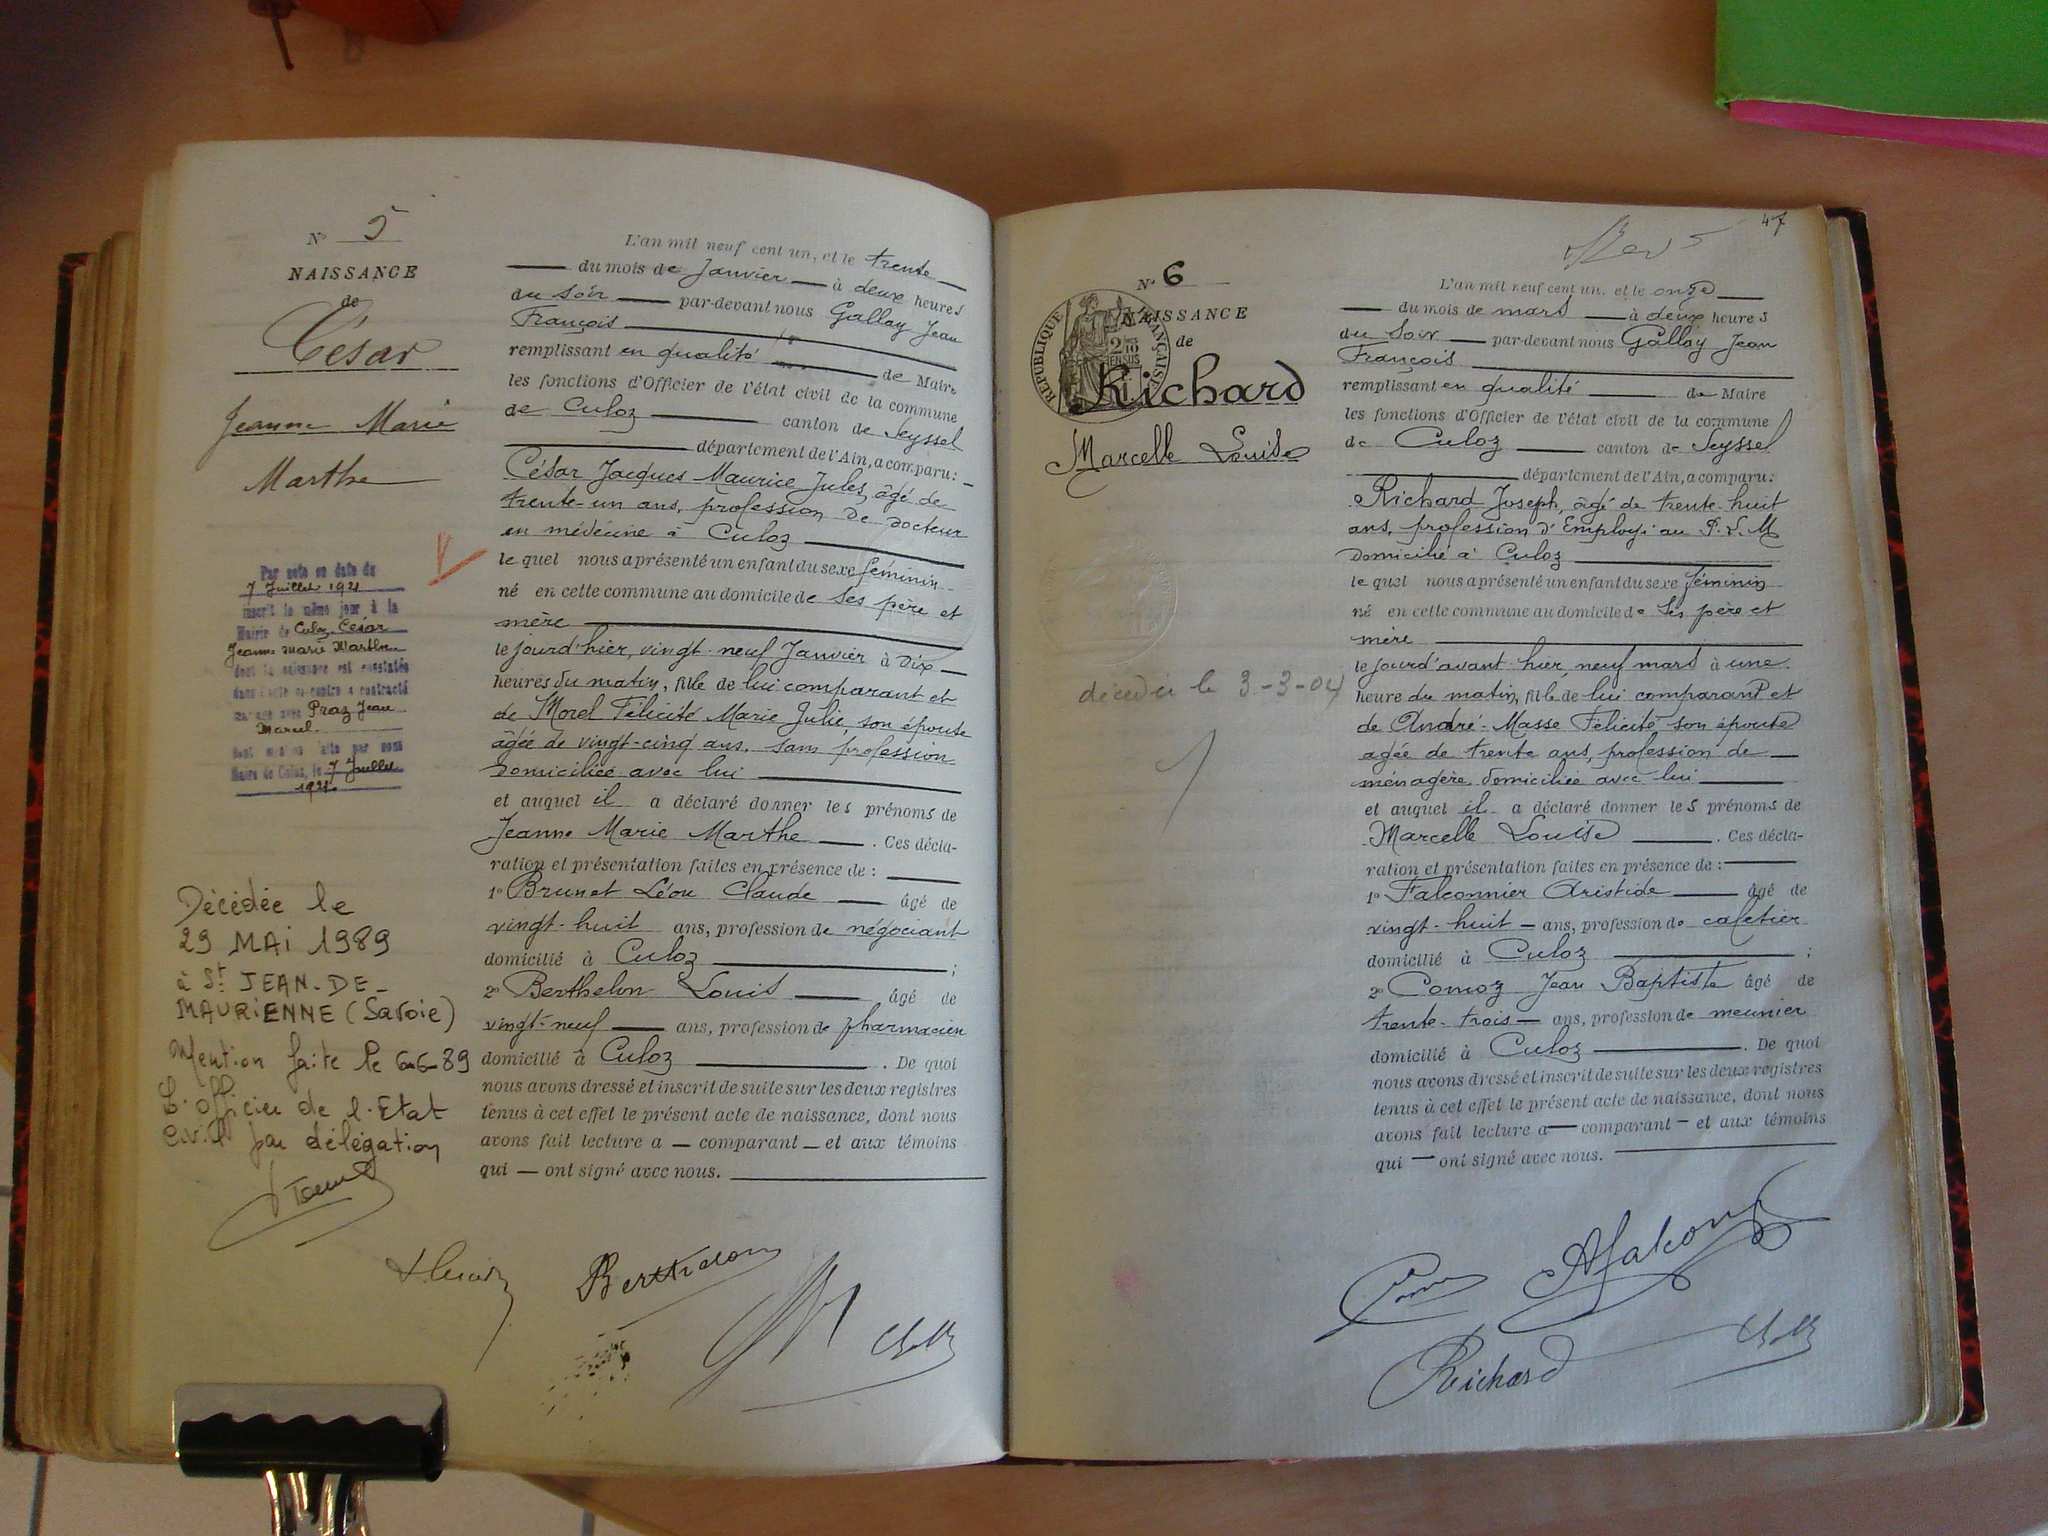 N° 5
NAISSANCE
de
César
Jeanne Marie
Marthe
Par acte en date du
7 Juillet 1921
inscrit le même jour à la
Mairie de Culoz, César
Jeanne Marie Marthe
dont la naissance est constatée
dans l'acte ci-contre a contracté
mariage avec Praz Jean
Marcel
dont mention faite par nous
Maire de Culoz, le 7 Juillet
1921.
Décédée le
29 MAI 1989
à St JEAN-DE-
MAURIENNE (Savoie)
Mention faite le 6-6-89
L'officier de l'Etat
Civil par délégation
L'an mil neuf cent un, et le trente
du mois de Janvier à deux heures
du soir par-devant nous Gallay Jean
François
remplissant en qualité de Maire
les fonctions d'Officier de l'état civil de la commune
de Culoz canton de Seyssel
département de l'Ain, a comparu :
César Jacques Maurice Jules, âgé de
trente-un ans, profession de docteur
en médécine à Culoz
le quel nous a présenté un enfant du sexe féminin
né en cette commune au domicile de ses père et
mère
le jourd'hier, vingt-neuf Janvier à dix
heures du matin, fille de lui comparant et
de Morel Félicité Marie Julie, son épouse
âgée de vingt-cinq ans, sans profession
domiciliée avec lui
et auquel il a déclaré donner les prénoms de
Jeanne Marie Marthe . Ces décla-
ration et présentation faites en présence de :
1° Brunet Léon Claude âgé de
vingt-huit ans, profession de négociant
domicilié à Culoz ;
2° Berthelon Louis âgé de
vingt-neuf ans, profession de pharmacien
domicilié à Culoz . De quoi
nous avons dressé et inscrit de suite sur les deux registres
tenus à cet effet le présent acte de naissance, dont nous
avons fait lecture a — comparant — et aux témoins
qui — ont signé avec nous.
Berthelon
47
N° 6
NAISSANCE
de
RÉPUBLIQUE FRANÇAISE
Richard
Marcelle Louise
décédée le 3-3-04
L'an mil neuf cent un, et le onze
du mois de mars à deux heures
du soir par-devant nous Gallay Jean
François
remplissant en qualité de Maire
les fonctions d'Officier de l'état civil de la commune
de Culoz canton de Seyssel
département de l'Ain, a comparu :
Richard Joseph, âgé de trente-huit
ans, profession d'Employé au P.L.M
domicilié à Culoz
le quel nous a présenté un enfant du sexe féminin
né en cette commune au domicile de ses père et
mère
le jourd'avant-hier, neuf mars à une
heure du matin, fille de lui comparant et
de André-Masse Félicité son épouse
agée de trente ans, profession de
ménagère domiciliée avec lui
et auquel il a déclaré donner les prénoms de
Marcelle Louise . Ces décla-
ration et présentation faites en présence de :
1° Falconnier Aristide âgé de
vingt-huit — ans, profession de cafetier
domicilié à Culoz ;
2° Comoz Jean Baptiste âgé de
trente-trois — ans, profession de meunier
domicilié à Culoz . De quoi
nous avons dressé et inscrit de suite sur les deux registres
tenus à cet effet le présent acte de naissance, dont nous
avons fait lecture a — comparant — et aux témoins
qui — ont signé avec nous.
Richard